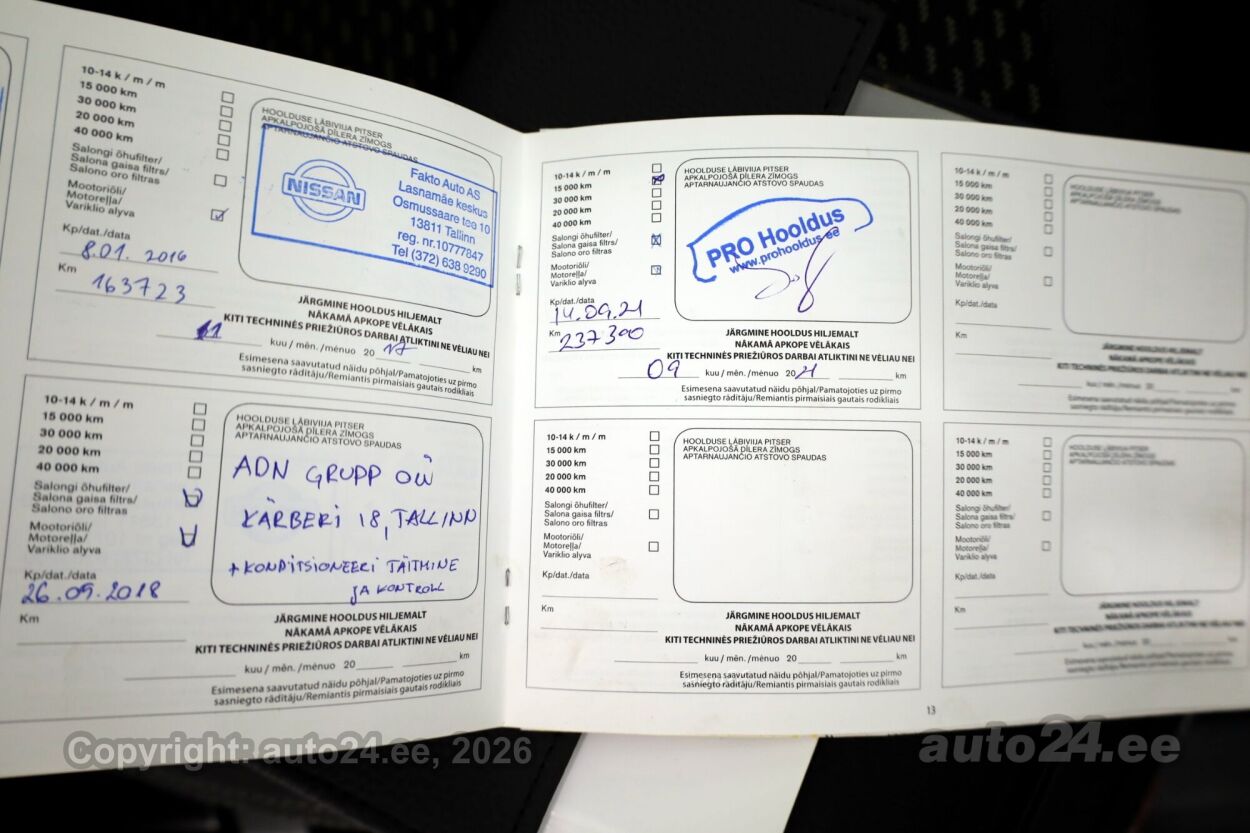 10-14 k / m / m
15 000 km
30 000 km
20 000 km
40 000 km
Salongi õhufilter/
Salona gaisa filtrs/
Salono oro filtras
Mootoriõli/
Motoreļļa/
Variklio alyva
Kp/dat./data
8.01. 2016
Km
163723
HOOLDUSE LÄBIVIIJA PITSER
APKALPOJOŠĀ DĪLERA ZĪMOGS
APTARNAUJANČIO ATSTOVO SPAUDAS
NISSAN
Fakto Auto AS
Lasnamäe keskus
Osmussaare tee 10
13811 Tallinn
reg. nr.10777847
Tel (372) 638 9290
JÄRGMINE HOOLDUS HILJEMALT
NĀKAMĀ APKOPE VĒLĀKAIS
KITI TECHNINĖS PRIEŽIŪROS DARBAI ATLIKTINI NE VĖLIAU NEI
11 kuu / mēn. /mėnuo 20 17
Esimesena saavutatud näidu põhjal/Pamatojoties uz pirmo
sasniegto rādītāju/Remiantis pirmaisiais gautais rodikliais
10-14 k / m / m
15 000 km
30 000 km
20 000 km
40 000 km
Salongi õhufilter/
Salona gaisa filtrs/
Salono oro filtras
Mootoriõli/
Motoreļļa/
Variklio alyva
Kp/dat./data
26.09.2018
Km
HOOLDUSE LÄBIVIIJA PITSER
APKALPOJOŠĀ DĪLERA ZĪMOGS
APTARNAUJANČIO ATSTOVO SPAUDAS
ADN GRUPP OÜ
KÄRBERI 18, TALLINN
+ KONDITSIONEERI TÄITMINE
JA KONTROLL
JÄRGMINE HOOLDUS HILJEMALT
NĀKAMĀ APKOPE VĒLĀKAIS
KITI TECHNINĖS PRIEŽIŪROS DARBAI ATLIKTINI NE VĖLIAU NEI
kuu / mēn. /mėnuo 20 km
Esimesena saavutatud näidu põhjal/Pamatojoties uz pirmo
sasniegto rādītāju/Remiantis pirmaisiais gautais rodikliais
10-14 k / m / m
15 000 km
30 000 km
20 000 km
40 000 km
Salongi õhufilter/
Salona gaisa filtrs/
Salono oro filtras
Mootoriõli/
Motoreļļa/
Variklio alyva
Kp/dat./data
14.09.21
Km
237300
HOOLDUSE LÄBIVIIJA PITSER
APKALPOJOŠĀ DĪLERA ZĪMOGS
APTARNAUJANČIO ATSTOVO SPAUDAS
PRO Hooldus
www.prohooldus.ee
JÄRGMINE HOOLDUS HILJEMALT
NĀKAMĀ APKOPE VĒLĀKAIS
KITI TECHNINĖS PRIEŽIŪROS DARBAI ATLIKTINI NE VĖLIAU NEI
09 kuu / mēn. /mėnuo 20 21 km
Esimesena saavutatud näidu põhjal/Pamatojoties uz pirmo
sasniegto rādītāju/Remiantis pirmaisiais gautais rodikliais
10-14 k / m / m
15 000 km
30 000 km
20 000 km
40 000 km
Salongi õhufilter/
Salona gaisa filtrs/
Salono oro filtras
Mootoriõli/
Motoreļļa/
Variklio alyva
Kp/dat./data
Km
HOOLDUSE LÄBIVIIJA PITSER
APKALPOJOŠĀ DĪLERA ZĪMOGS
APTARNAUJANČIO ATSTOVO SPAUDAS
JÄRGMINE HOOLDUS HILJEMALT
NĀKAMĀ APKOPE VĒLĀKAIS
KITI TECHNINĖS PRIEŽIŪROS DARBAI ATLIKTINI NE VĖLIAU NEI
kuu / mēn. /mėnuo 20 km
Esimesena saavutatud näidu põhjal/Pamatojoties uz pirmo
sasniegto rādītāju/Remiantis pirmaisiais gautais rodikliais
10-14 k / m / m
15 000 km
30 000 km
20 000 km
40 000 km
Salongi õhufilter/
Salona gaisa filtrs/
Salono oro filtras
Mootoriõli/
Motoreļļa/
Variklio alyva
Kp/dat./data
Km
10-14 k / m / m
15 000 km
30 000 km
20 000 km
40 000 km
Salongi õhufilter/
Salona gaisa filtrs/
Salono oro filtras
Mootoriõli/
Motoreļļa/
Variklio alyva
Kp/dat./data
Km
13
Copyright: auto24.ee, 2026
auto24.ee